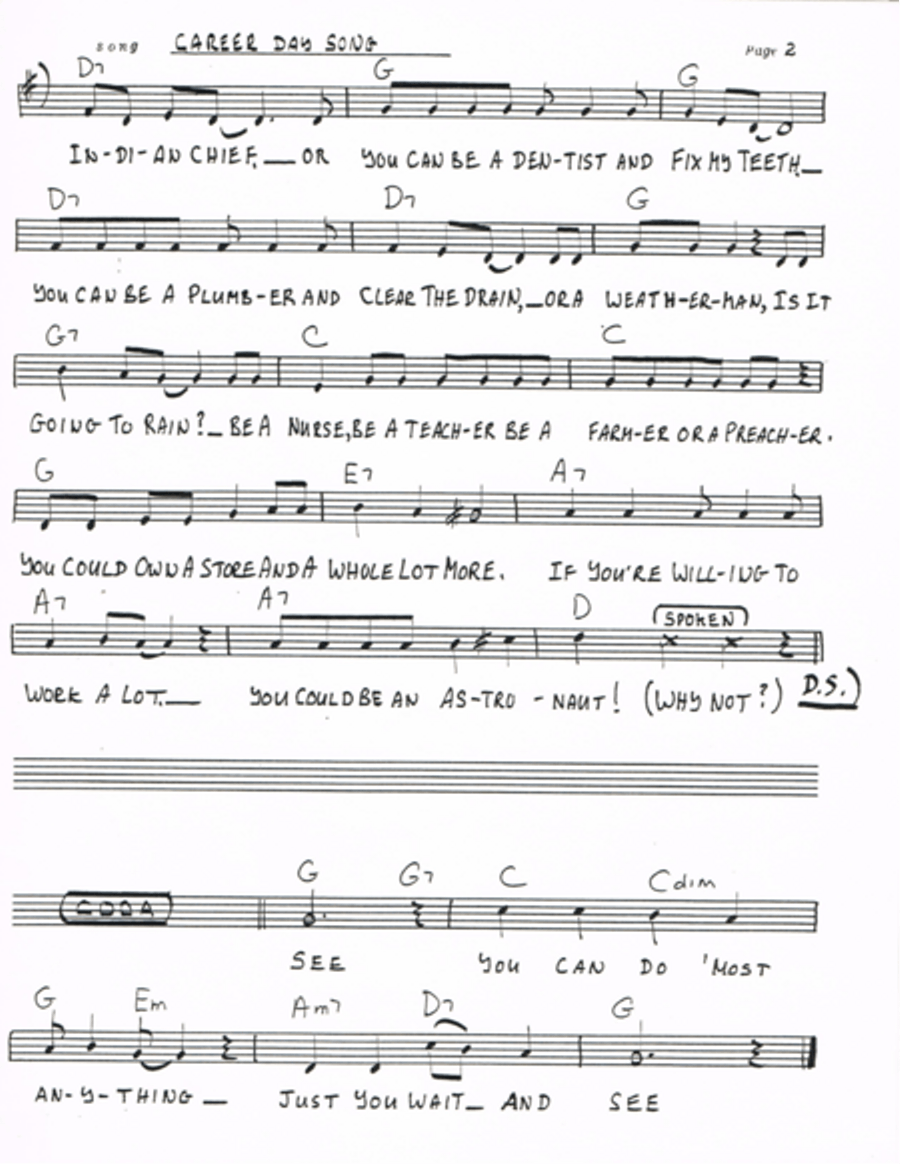 song CAREER DAY SONG Page 2
D7 G G
IN-DI-AN CHIEF,__ OR YOU CAN BE A DEN-TIST AND FIX MY TEETH,__
D7 D7 G
YOU CAN BE A PLUMB-ER AND CLEAR THE DRAIN,_ OR A WEATH-ER-MAN, IS IT
G7 C C
GOING TO RAIN?_ BE A NURSE, BE A TEACH-ER BE A FARM-ER OR A PREACH-ER.
G E7 A7
YOU COULD OWN A STORE AND A WHOLE LOT MORE. IF YOU'RE WILL-ING TO
A7 A7 D (SPOKEN)
WORK A LOT.__ YOU COULD BE AN AS-TRO-NAUT! (WHY NOT?) D.S.)
G G7 C Cdim
CODA
SEE YOU CAN DO 'MOST
G Em Am7 D7 G
AN-Y-THING _ JUST YOU WAIT_ AND SEE